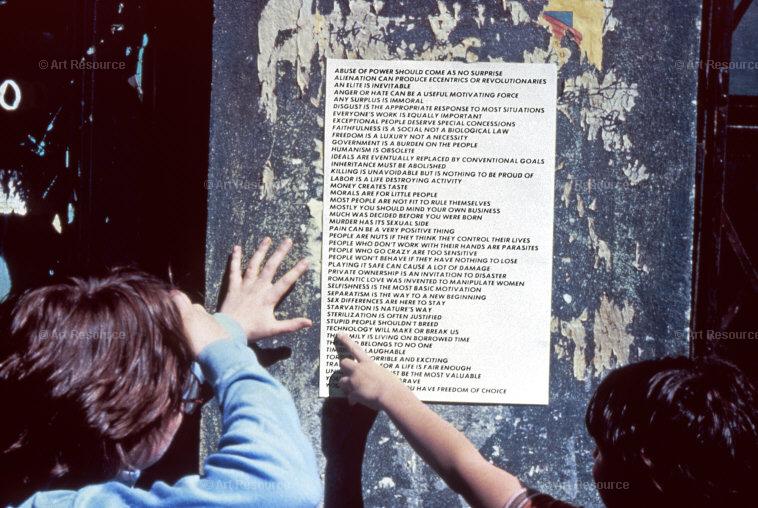 ABUSE OF POWER SHOULD COME AS NO SURPRISE
ALIENATION CAN PRODUCE ECCENTRICS OR REVOLUTIONARIES
AN ELITE IS INEVITABLE
ANGER OR HATE CAN BE A USEFUL MOTIVATING FORCE
ANY SURPLUS IS IMMORAL
DISGUST IS THE APPROPRIATE RESPONSE TO MOST SITUATIONS
EVERYONE'S WORK IS EQUALLY IMPORTANT
EXCEPTIONAL PEOPLE DESERVE SPECIAL CONCESSIONS
FAITHFULNESS IS A SOCIAL NOT A BIOLOGICAL LAW
FREEDOM IS A LUXURY NOT A NECESSITY
GOVERNMENT IS A BURDEN ON THE PEOPLE
HUMANISM IS OBSOLETE
IDEALS ARE EVENTUALLY REPLACED BY CONVENTIONAL GOALS
INHERITANCE MUST BE ABOLISHED
KILLING IS UNAVOIDABLE BUT IS NOTHING TO BE PROUD OF
LABOR IS A LIFE DESTROYING ACTIVITY
MONEY CREATES TASTE
MORALS ARE FOR LITTLE PEOPLE
MOST PEOPLE ARE NOT FIT TO RULE THEMSELVES
MOSTLY YOU SHOULD MIND YOUR OWN BUSINESS
MUCH WAS DECIDED BEFORE YOU WERE BORN
MURDER HAS ITS SEXUAL SIDE
PAIN CAN BE A VERY POSITIVE THING
PEOPLE ARE NUTS IF THEY THINK THEY CONTROL THEIR LIVES
PEOPLE WHO DON'T WORK WITH THEIR HANDS ARE PARASITES
PEOPLE WHO GO CRAZY ARE TOO SENSITIVE
PEOPLE WON'T BEHAVE IF THEY HAVE NOTHING TO LOSE
PLAYING IT SAFE CAN CAUSE A LOT OF DAMAGE
PRIVATE OWNERSHIP IS AN INVITATION TO DISASTER
ROMANTIC LOVE WAS INVENTED TO MANIPULATE WOMEN
SELFISHNESS IS THE MOST BASIC MOTIVATION
SEPARATISM IS THE WAY TO A NEW BEGINNING
SEX DIFFERENCES ARE HERE TO STAY
STARVATION IS NATURE'S WAY
STERILIZATION IS OFTEN JUSTIFIED
STUPID PEOPLE SHOULDN'T BREED
TECHNOLOGY WILL MAKE OR BREAK US
IS LIVING ON BORROWED TIME
BELONGS TO NO ONE
LAUGHABLE
HORRIBLE AND EXCITING
FOR A LIFE IS FAIR ENOUGH
BE THE MOST VALUABLE
YOU HAVE FREEDOM OF CHOICE
© Art Resource
© Art Resource
© Art Resource
© Art Resource
© Art Resource
© Art Resource
© Art Resource